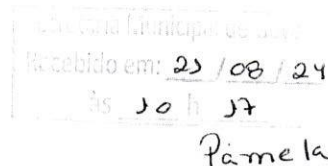 Municipal de
Recebido em: 23 / 08 / 24
às 10 h 17
Pamela